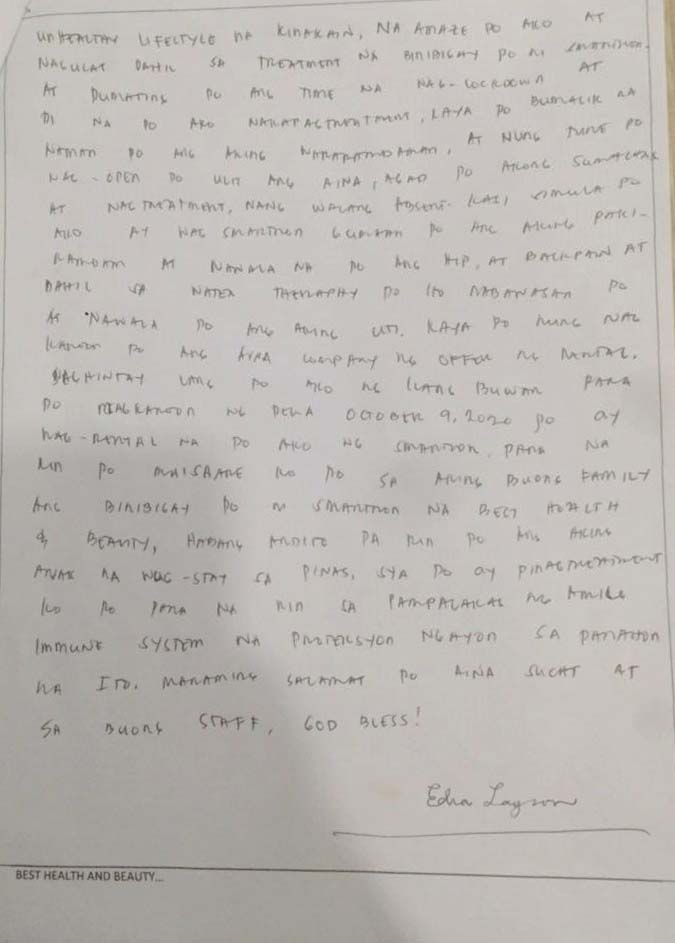 UNHEALTHY LIFECTYLE NA KINAKAIN, NA AMAZE PO AKO AT
NAGULAT DAHIL SA TREATMENT NA BINIBIGAY PO NI SMARTRON.
AT DUMATING PO ANG TIME NA NAG-LOCKDOWN AT
DI NA PO AKO NAKAPAGTREATMENT, KAYA PO BUMALIK NA
NAMAN PO ANG AKING NARARAMDAMAN, AT NUNG JUNE PO
NAG-OPEN PO ULIT ANG AINA, AGAD PO AKONG
AT NAGTREATMENT, NANG WALANG ABSENT. KASI, SIMULA PO
AKO AY NAG SMARTRON GUMAAN PO ANG AKING PAKI-
RAMDAM AT NAWALA NA PO ANG HIP, AT BACKPAIN AT
DAHIL SA WATER THERAPHY PO ITO NABAWASAN PO
AT NAWALA PO ANG AKING UTI. KAYA PO NUNG NAG
KAROON PO ANG COMPANY NG OFFER NG RENTAL.
NAGHINTAY LANG PO AKO NG ILANG BUWAN PARA
PO MAGKAROON NG PERA OCTOBER 9, 2020 PO AY
NAG-RENTAL NA PO AKO NG SMARTRON, PARA NA
RIN PO MAISHARE KO PO SA AKING BUONG FAMILY
ANG BINIBIGAY PO NI SMARTRON NA BEST HEALTH
& BEAUTY, HABANG ANDITO PA RIN PO ANG AKING
ANAK NA NAG-STAY SA PINAS, SYA PO AY PINAGTREATMENT
KO PO PARA NA RIN SA PAMPALAKAS NG AMING
IMMUNE SYSTEM NA PROTEKSYON NGAYON SA PANAHON
NA ITO. MARAMING SALAMAT PO AINA SUCAT AT
SA BUONG STAFF, GOD BLESS!
BEST HEALTH AND BEAUTY...